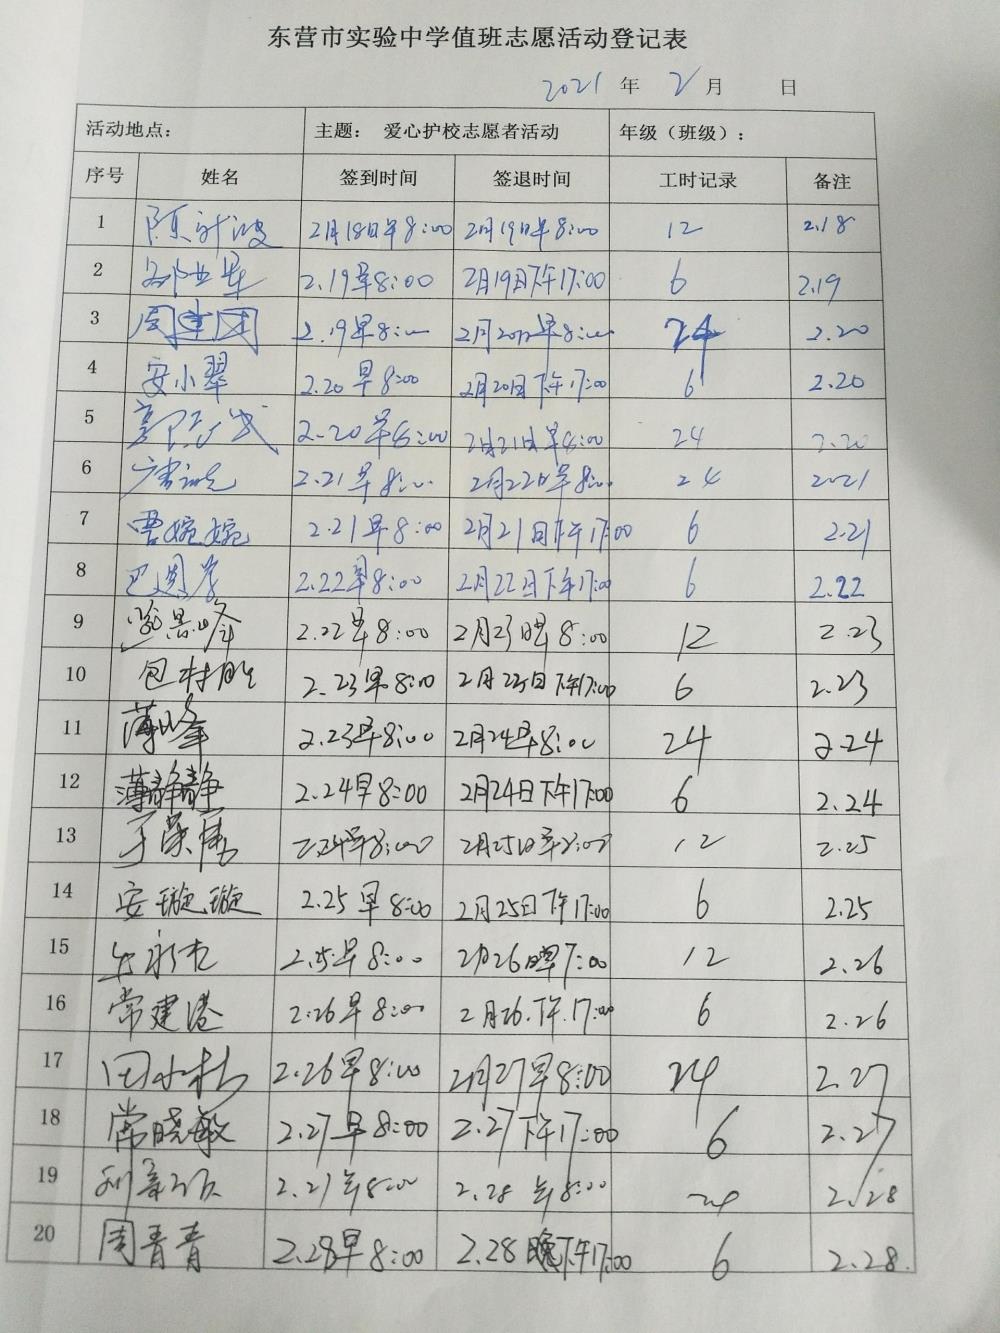 东营市实验中学值班志愿活动登记表
2021 年 2 月 日
活动地点： 主题： 爱心护校志愿者活动 年级（班级）：
序号 姓名 签到时间 签退时间 工时记录 备注
1 2月18日早8:00 2月19日早8:00 12 2.18
2 2.19早8:00 2月19日下午17:00 6 2.19
3 周建团 2.19早8:00 2月20日早8:00 24 2.20
4 安小翠 2.20早8:00 2月20日下午17:00 6 2.20
5 2.20早8:00 2月21日早8:00 24 2.20
6 2.21早8:00 2月22日早8:00 24 2021
7 曹婉婉 2.21早8:00 2月21日下午17:00 6 2.21
8 2.22早8:00 2月22日下午17:00 6 2.22
9 2.22早8:00 2月23日晚8:00 12 2.23
10 包村胜 2.23早8:00 2月23日下午17:00 6 2.23
11 薄峰 2.23早8:00 2月24早8:00 24 2.24
12 薄静静 2.24早8:00 2月24日下午17:00 6 2.24
13 2.24早8:00 2月25日早8:00 12 2.25
14 安璇璇 2.25早8:00 2月25日下午17:00 6 2.25
15 2.25早8:00 2月26晚7:00 12 2.26
16 常建港 2.26早8:00 2月26.下午.17:00 6 2.26
17 田小杉 2.26早8:00 2月27早8:00 24 2.27
18 常晓敏 2.27早8:00 2.27下午17:00 6 2.27
19 2.27早8:00 2.28早8:00 24 2.28
20 周青青 2.28早8:00 2.28下午17:00 6 2.28.